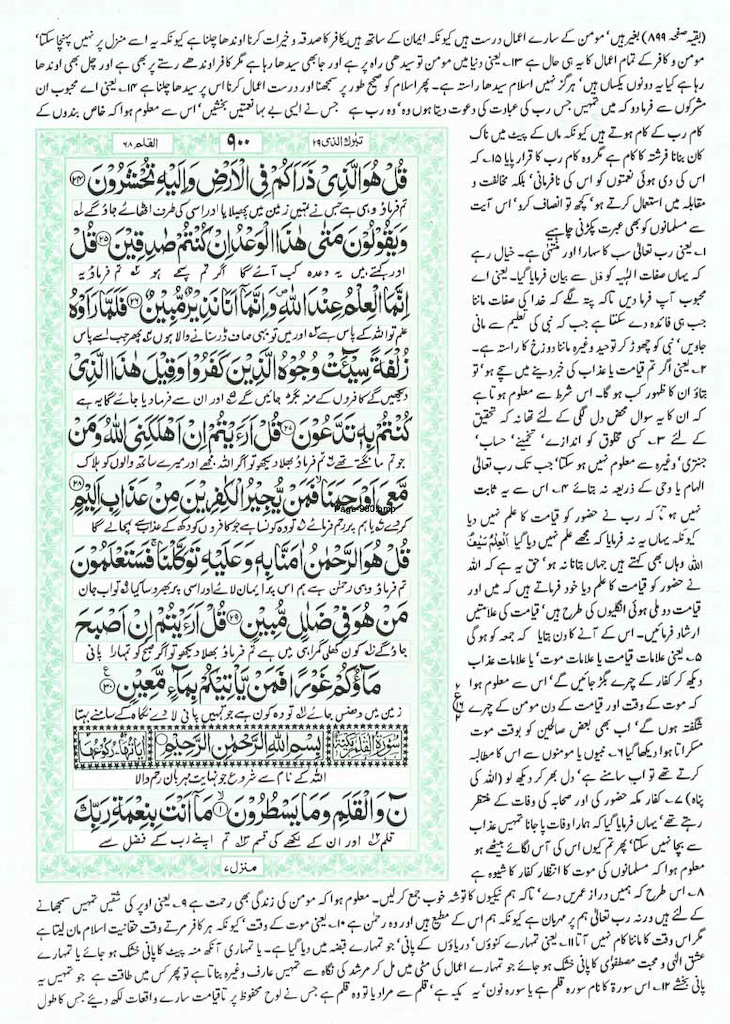 (بقیہ صفحہ ۸۹۹) بغیر ہیں' مومن کے سارے اعمال درست ہیں کیونکہ ایمان کے ساتھ ہیں کافر کا صدقہ و خیرات کرنا اوندھا چلنا ہے کیونکہ یہ اسے منزل پر نہیں پہنچا سکتا'
مومن و کافر کے تمام اعمال کا یہ ہی حال ہے ۱۳۔ یعنی دنیا میں مومن تو سیدھی راہ پر ہے اور جا بھی سیدھا رہا ہے مگر کافر اوندھے رستے پر بھی ہے اور چل بھی اوندھا
رہا ہے کیا یہ دونوں یکساں ہیں' ہرگز نہیں اسلام سیدھا راستہ ہے۔ پھر اسلام کو صحیح طور پر سمجھنا اور درست اعمال کرنا اس پر سیدھا چلنا ہے ۱۴۔ یعنی اے محبوب ان
مشرکوں سے فرما دو کہ میں تمہیں جس رب کی عبادت کی دعوت دیتا ہوں وہ' وہ رب ہے جس نے ایسی بے بہا نعمتیں بخشیں' اس سے معلوم ہوا کہ خاص بندوں کے
کام رب کے کام ہوتے ہیں کیونکہ ماں کے پیٹ میں ناک
کان بنانا فرشتہ کا کام ہے مگر وہ کام رب کا قرار پایا ۱۵۔ کہ
اس کی دی ہوئی نعمتوں کو اس کی نافرمانی' بلکہ مخالفت و
مقابلہ میں استعمال کرتے ہو' کچھ تو انصاف کرو' اس آیت
سے مسلمانوں کو بھی عبرت پکڑنی چاہیے
۱۔ یعنی رب تعالیٰ سب کا سہارا اور منتہیٰ ہے۔ خیال رہے
کہ یہاں صفات الٰہیہ کو قل سے بیان فرمایا گیا۔ یعنی اے
محبوب آپ فرما دیں تاکہ پتہ لگے کہ خدا کی صفات ماننا
جب ہی فائدہ دے سکتا ہے جب کہ نبی کی تعلیم سے مانی
جاویں' نبی کو چھوڑ کر توحید وغیرہ ماننا دوزخ کا راستہ ہے۔
۲۔ یعنی اگر تم قیامت یا عذاب کی خبر دینے میں سچے ہو' تو
بتاؤ ان کا ظہور کب ہو گا۔ اس شرط سے معلوم ہوتا ہے
کہ ان کا یہ سوال محض دل لگی کے لئے تھا نہ کہ تحقیق
کے لئے ۳۔ کسی مخلوق کو اندازے' تخمینے' حساب'
جنتری' وغیرہ سے معلوم نہیں ہو سکتا' جب تک رب تعالیٰ
الہام یا وحی کے ذریعہ نہ بتائے ۴۔ اس سے یہ ثابت
نہیں ہوتا کہ رب نے حضور کو قیامت کا علم نہیں دیا
کیونکہ یہاں یہ نہ فرمایا کہ مجھے علم نہیں دیا گیا
اللہ وہاں بھی کہتے ہیں جہاں بتانا نہ ہو' حق یہ ہے کہ اللہ
نے حضور کو قیامت کا علم دیا خود فرماتے ہیں کہ میں اور
قیامت دو ملی ہوئی انگلیوں کی طرح ہیں' قیامت کی علامتیں
ارشاد فرمائیں۔ اس کے آنے کا دن بتایا کہ جمعہ کو ہو گی
۵۔ یعنی علامات قیامت یا علامات موت' یا علامات عذاب
دیکھ کر کفار کے چہرے بگڑ جائیں گے' اس سے معلوم ہوا
کہ موت کے وقت اور قیامت کے دن مومن کے چہرے
شگفتہ ہوں گے' اب بھی بعض صالحین کو بوقت موت
مسکراتا ہوا دیکھا گیا ۶۔ نبیوں یا مومنوں سے اس کا مطالبہ
کرتے تھے تو اب سامنے ہے' دل بھر کر دیکھ لو (اللہ کی
پناہ) ۷۔ کفار مکہ حضور کی اور صحابہ کی وفات کے منتظر
رہتے تھے' یہاں فرمایا گیا کہ ہمارا وفات پا جانا تمہیں عذاب
سے بچا نہیں سکتا' پھر تم کیوں اس کی آس لگائے بیٹھے ہو
معلوم ہوا کہ مسلمانوں کی موت کا انتظار کفار کا شیوہ ہے
تبٰرک الذی ۲۹
۹۰۰
القلم ۶۸
قُلْ هُوَ الَّذِیْ ذَرَاَكُمْ فِی الْاَرْضِ وَاِلَیْهِ تُحْشَرُوْنَ ۲۴
تم فرماؤ وہی ہے جس نے تمہیں زمین میں پھیلایا اور اسی کی طرف اٹھائے جاؤ گے
وَیَقُوْلُوْنَ مَتٰی هٰذَا الْوَعْدُ اِنْ كُنْتُمْ صٰدِقِیْنَ ۲۵ قُلْ
اور کہتے ہیں یہ وعدہ کب آئے گا اگر تم سچے ہو تم فرماؤ یہ
اِنَّمَا الْعِلْمُ عِنْدَ اللّٰهِ وَاِنَّمَاۤ اَنَا نَذِیْرٌ مُّبِیْنٌ ۲۶ فَلَمَّا رَاَوْهُ
علم تو اللہ کے پاس ہے اور میں تو یہی صاف ڈر سنانے والا ہوں پھر جب اسے پاس
زُلْفَةً سِیْٓــَٔتْ وُجُوْهُ الَّذِیْنَ كَفَرُوْا وَقِیْلَ هٰذَا الَّذِیْ
دیکھیں گے کافروں کے منہ بگڑ جائیں گے اور ان سے فرما دیا جائے گا یہ ہے
كُنْتُمْ بِهٖ تَدَّعُوْنَ ۲۷ قُلْ اَرَءَیْتُمْ اِنْ اَهْلَكَنِیَ اللّٰهُ وَمَنْ
جو تم مانگتے تھے تم فرماؤ بھلا دیکھو تو اگر اللہ مجھے اور میرے ساتھ والوں کو ہلاک
مَّعِیَ اَوْ رَحِمَنَا فَمَنْ یُّجِیْرُ الْكٰفِرِیْنَ مِنْ عَذَابٍ اَلِیْمٍ ۲۸
Page-900.bmp
کر دے یا ہم پر رحم فرمائے تو وہ کونسا ہے جو کافروں کو دکھ کے عذاب سے بچالے گا
قُلْ هُوَ الرَّحْمٰنُ اٰمَنَّا بِهٖ وَعَلَیْهِ تَوَكَّلْنَا فَسَتَعْلَمُوْنَ
تم فرماؤ وہی رحمٰن ہے ہم اس پر ایمان لائے اور اسی پر بھروسا کیا تو اب جان
مَنْ هُوَ فِیْ ضَلٰلٍ مُّبِیْنٍ ۲۹ قُلْ اَرَءَیْتُمْ اِنْ اَصْبَحَ
جاؤ گے کون کھلی گمراہی میں ہے تم فرماؤ بھلا دیکھو تو اگر صبح کو تمہارا پانی
مَآؤُكُمْ غَوْرًا فَمَنْ یَّاْتِیْكُمْ بِمَآءٍ مَّعِیْنٍ ۳۰
زمین میں دھنس جائے تو وہ کون ہے جو تمہیں پانی لا دے نگاہ کے سامنے بہتا
سُوْرَةُ الْقَلَمِ مَكِّیَّةٌ بِسْمِ اللّٰهِ الرَّحْمٰنِ الرَّحِیْمِ
اللہ کے نام سے شروع جو نہایت مہربان رحم والا
نٓ وَالْقَلَمِ وَمَا یَسْطُرُوْنَ ۱ مَاۤ اَنْتَ بِنِعْمَةِ رَبِّكَ
قلم اور ان کے لکھے کی قسم تم اپنے رب کے فضل سے
منزل ۷
۸۔ اس طرح کہ ہمیں دراز عمریں دے' تاکہ ہم نیکیوں کا توشہ خوب جمع کر لیں۔ معلوم ہوا کہ مومن کی زندگی بھی رحمت ہے ۹۔ یعنی اوپر کی شقیں تمہیں سمجھانے
کے لئے ہیں ورنہ رب تعالیٰ ہم پر مہربان ہے کیونکہ ہم اس کے مطیع ہیں اور وہ رحمٰن ہے ۱۰۔ یعنی موت کے وقت' کیونکہ ہر کافر مرتے وقت حقانیت اسلام مان لیتا ہے
مگر اس وقت کا ماننا کام نہیں آتا ۱۱۔ یعنی تمہارے کنوؤں' دریاؤں کے پانی' جو تمہارے قبضہ میں دیا گیا ہے۔ یا تمہاری آنکھ منہ پیٹ کا پانی خشک ہو جائے یا تمہارے
عشق الٰہی و محبت مصطفوی کا پانی خشک ہو جائے جو تمہارے اعمال کی مٹی میں مل کر مرشد کی نگاہ سے تمہیں عارف وغیرہ بناتا ہے تو پھر کس میں طاقت ہے جو تمہیں یہ
پانی بخشے ۱۲۔ اس سورۃ کا نام سورہ قلم ہے یا سورہ نون' یہ مکیہ ہے' قلم سے مراد یا تو وہ قلم ہے جس نے لوح محفوظ پر تا قیامت سارے واقعات لکھ دیئے جس کا طول